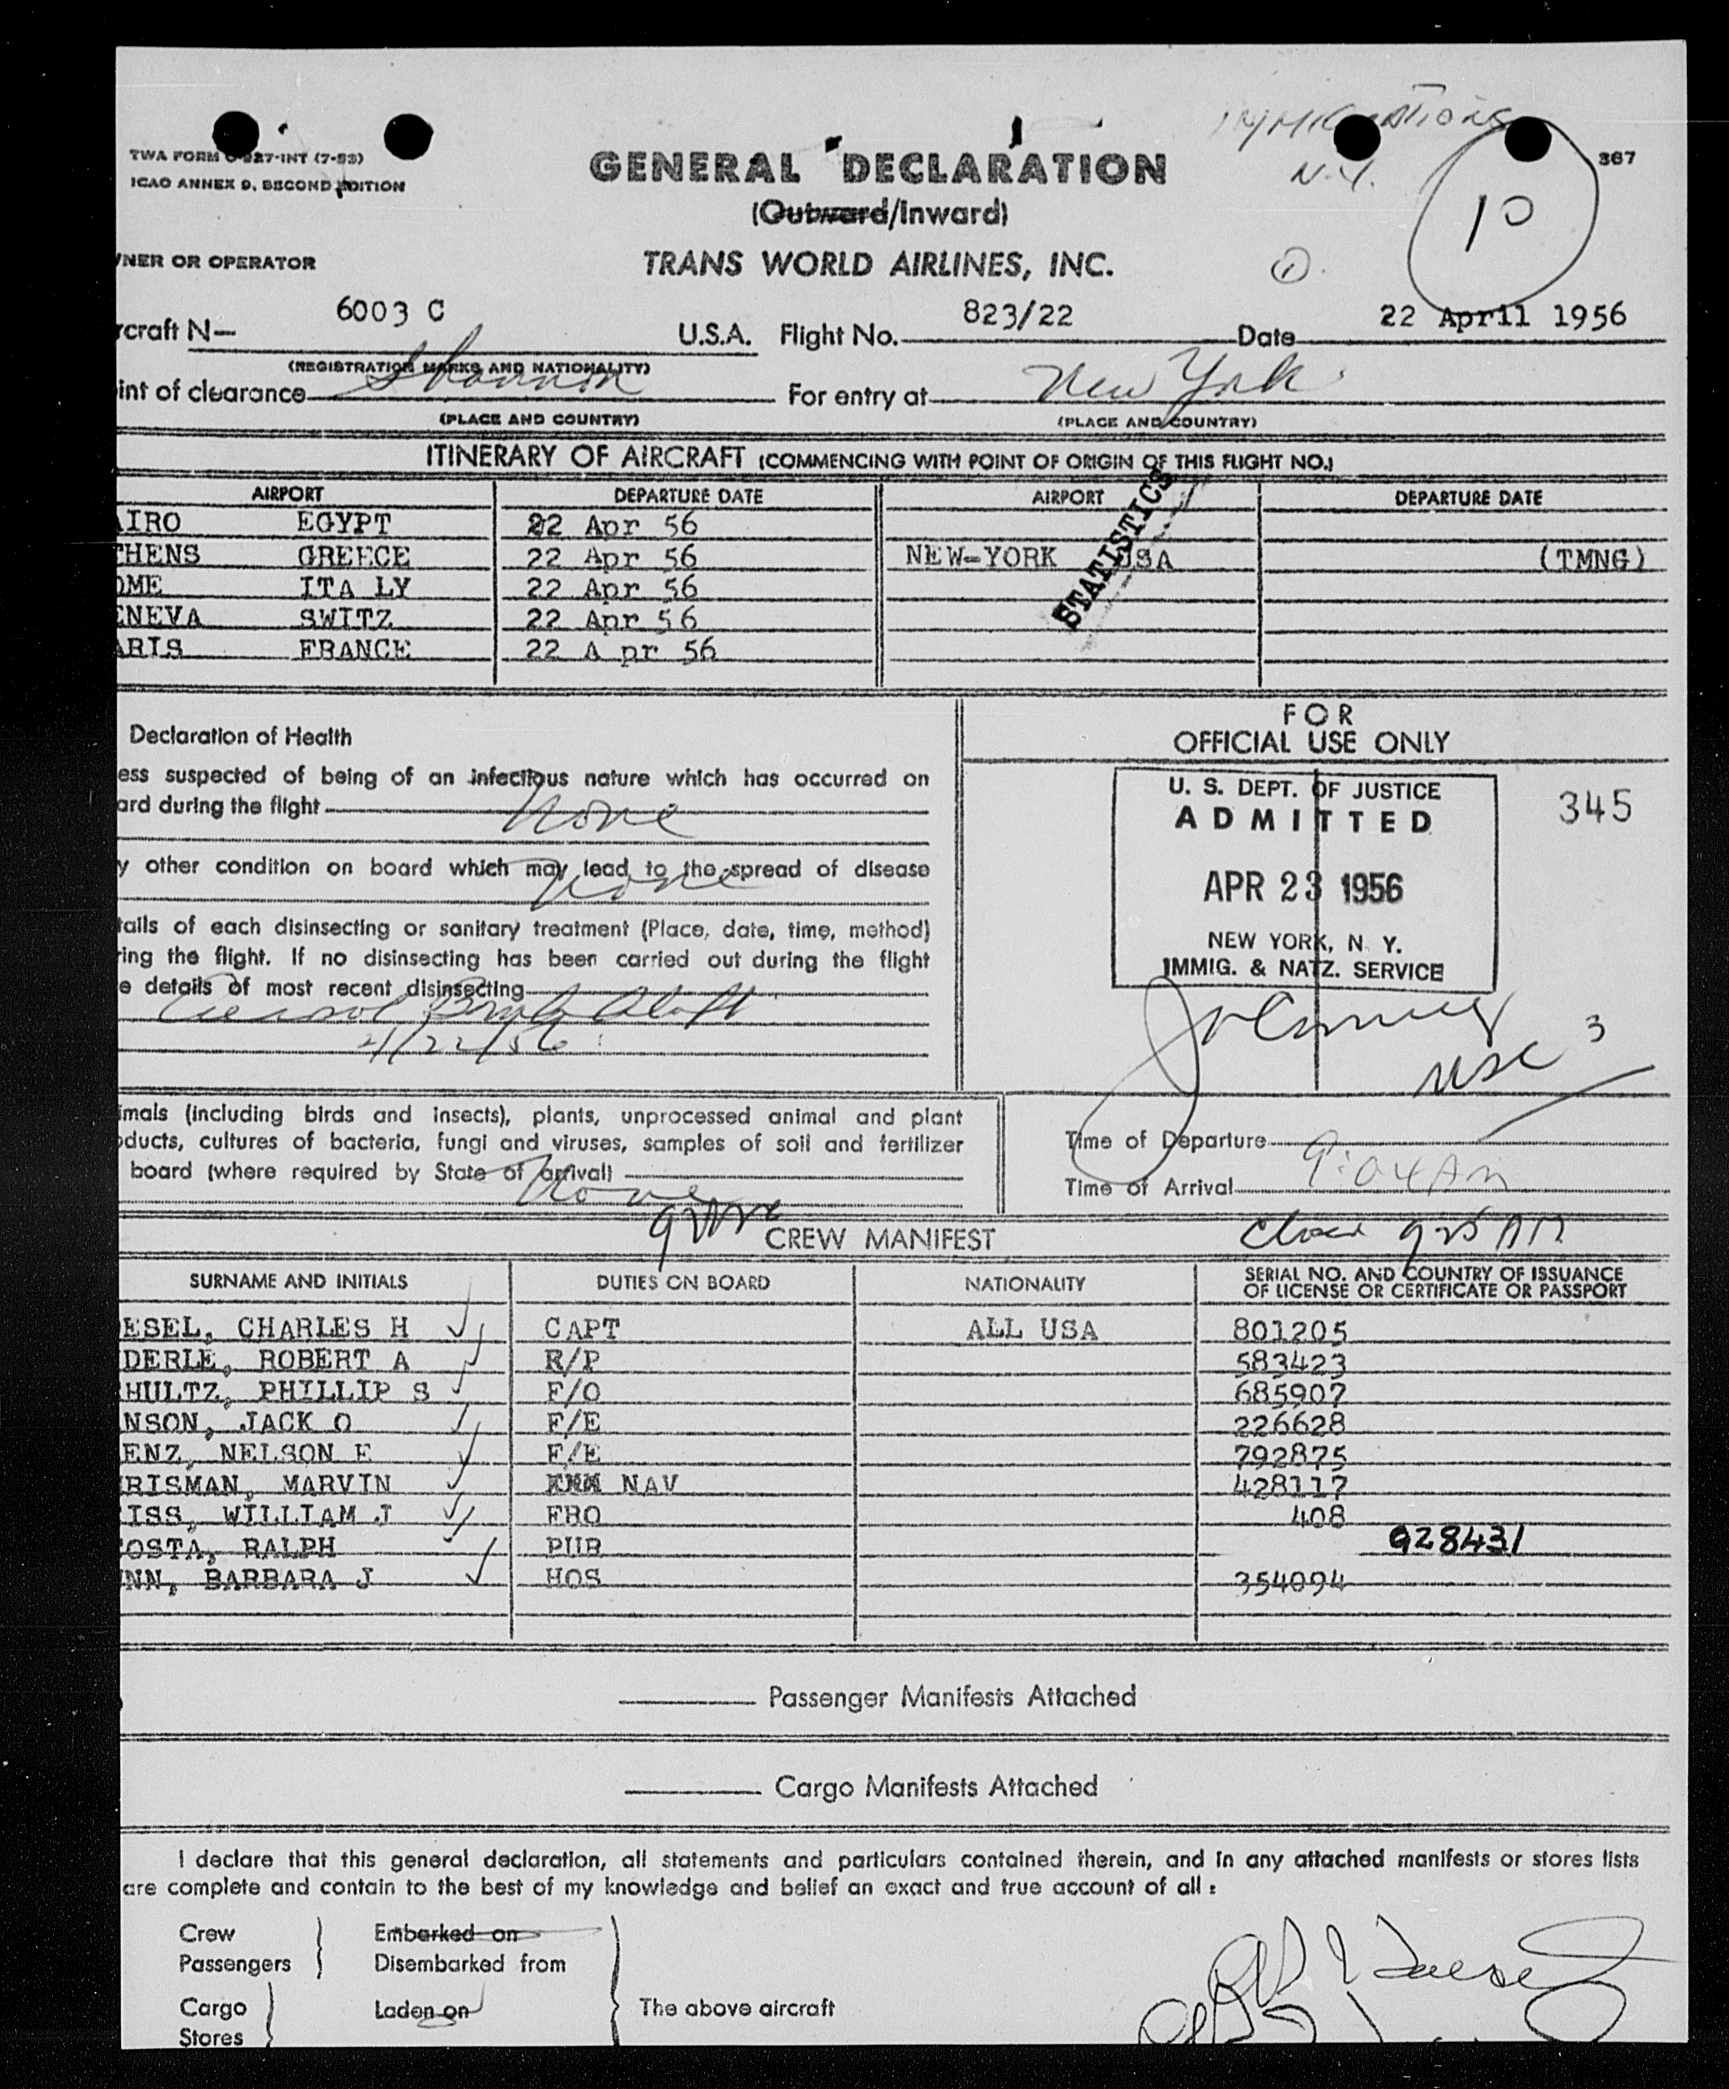 IMMIGRATIONS
N.Y.
10
367
TWA FORM C-927-INT (7-53)
ICAO ANNEX 9, SECOND EDITION
GENERAL DECLARATION
(Outward/Inward)
WNER OR OPERATOR
TRANS WORLD AIRLINES, INC.
1
rcraft N— 6003 C U.S.A. Flight No. 823/22 Date 22 April 1956
(REGISTRATION MARKS AND NATIONALITY)
int of clearance Shannon For entry at New York
(PLACE AND COUNTRY) (PLACE AND COUNTRY)
ITINERARY OF AIRCRAFT (COMMENCING WITH POINT OF ORIGIN OF THIS FLIGHT NO.)
AIRPORT DEPARTURE DATE AIRPORT DEPARTURE DATE
AIRO EGYPT 22 Apr 56
THENS GREECE 22 Apr 56 NEW-YORK USA (TMNG)
OME ITA LY 22 Apr 56
ENEVA SWITZ 22 Apr 56
ARIS FRANCE 22 A pr 56
STATISTICS
Declaration of Health
ess suspected of being of an infectious nature which has occurred on
ard during the flight None
y other condition on board which may lead to the spread of disease
None
tails of each disinsecting or sanitary treatment (Place, date, time, method)
ring the flight. If no disinsecting has been carried out during the flight
e details of most recent disinsecting
Aerosol Bomb Aloft
4/22/56
FOR
OFFICIAL USE ONLY
U. S. DEPT. OF JUSTICE
ADMITTED
APR 23 1956
NEW YORK, N. Y.
IMMIG. & NATZ. SERVICE
345
3
imals (including birds and insects), plants, unprocessed animal and plant
oducts, cultures of bacteria, fungi and viruses, samples of soil and fertilizer
board (where required by State of arrival)
None
Time of Departure
Time of Arrival 9:04AM
CREW MANIFEST
925 AM
SURNAME AND INITIALS DUTIES ON BOARD NATIONALITY SERIAL NO. AND COUNTRY OF ISSUANCE
OF LICENSE OR CERTIFICATE OR PASSPORT
ESEL, CHARLES H CAPT ALL USA 801205
DERLE, ROBERT A R/P 583423
HULTZ, PHILLIP S F/O 685907
NSON, JACK O F/E 226628
ENZ, NELSON E F/E 792875
RISMAN, MARVIN NAV 428117
ISS, WILLIAM J FRO 408
OSTA, RALPH PUR 928431
NN, BARBARA J HOS 354094
Passenger Manifests Attached
Cargo Manifests Attached
I declare that this general declaration, all statements and particulars contained therein, and in any attached manifests or stores lists
are complete and contain to the best of my knowledge and belief an exact and true account of all :
Crew Embarked on
Passengers Disembarked from
Cargo Laden on The above aircraft
Stores